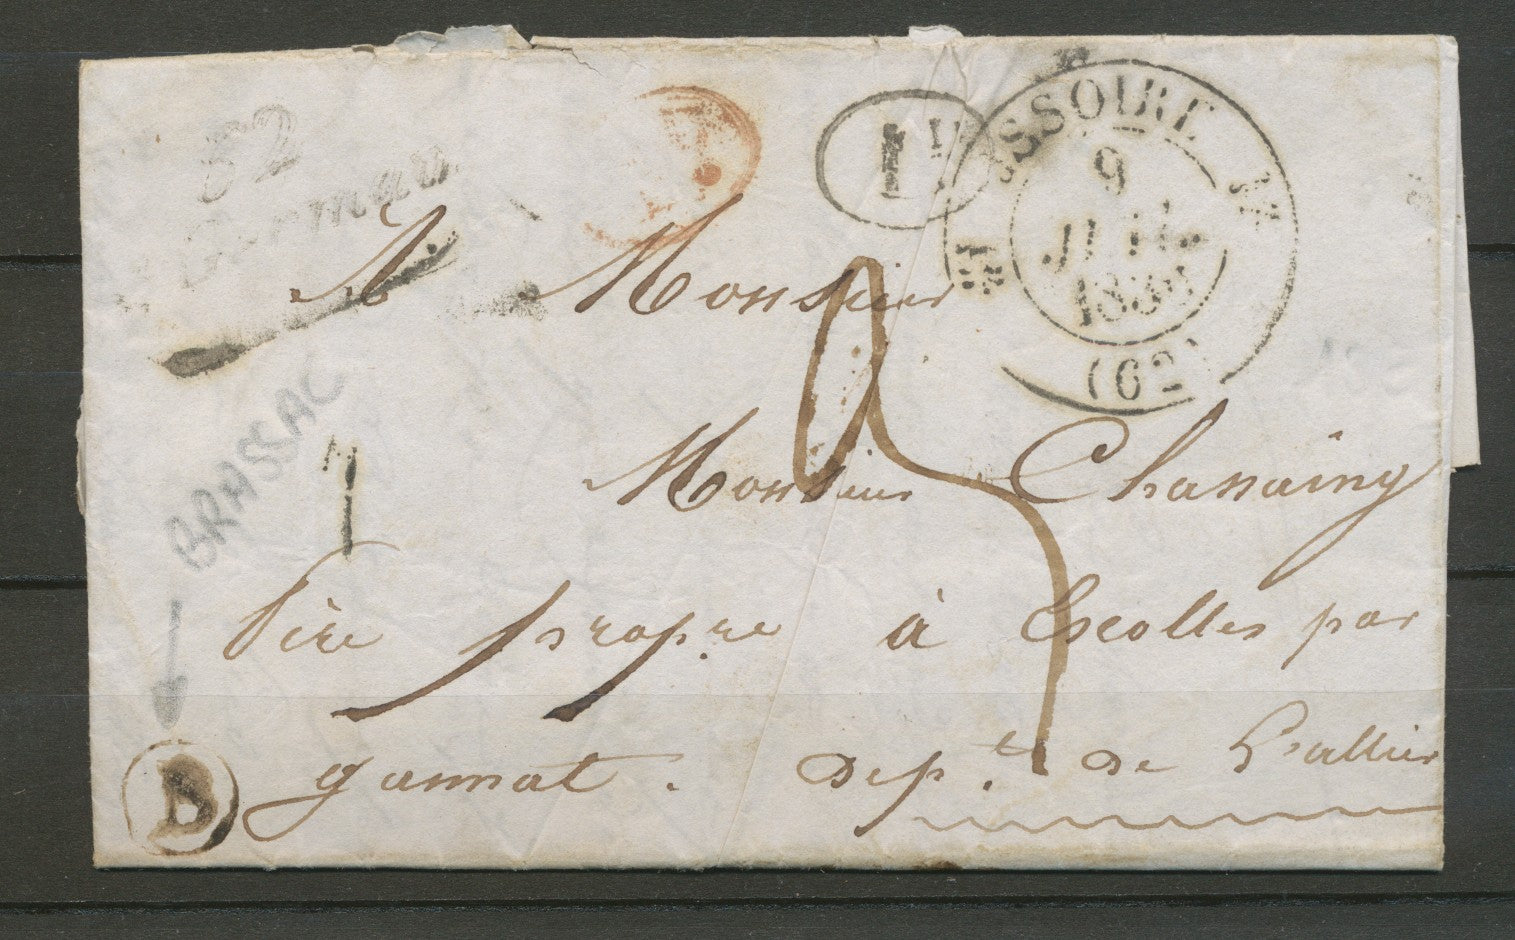 62
ISSOIRE
9
JUIL.
(62)
A Monsieur
Monsieur Chassaing
père propre à Escolles par
gannat. Dept. de L'allier
BRASSAC
B